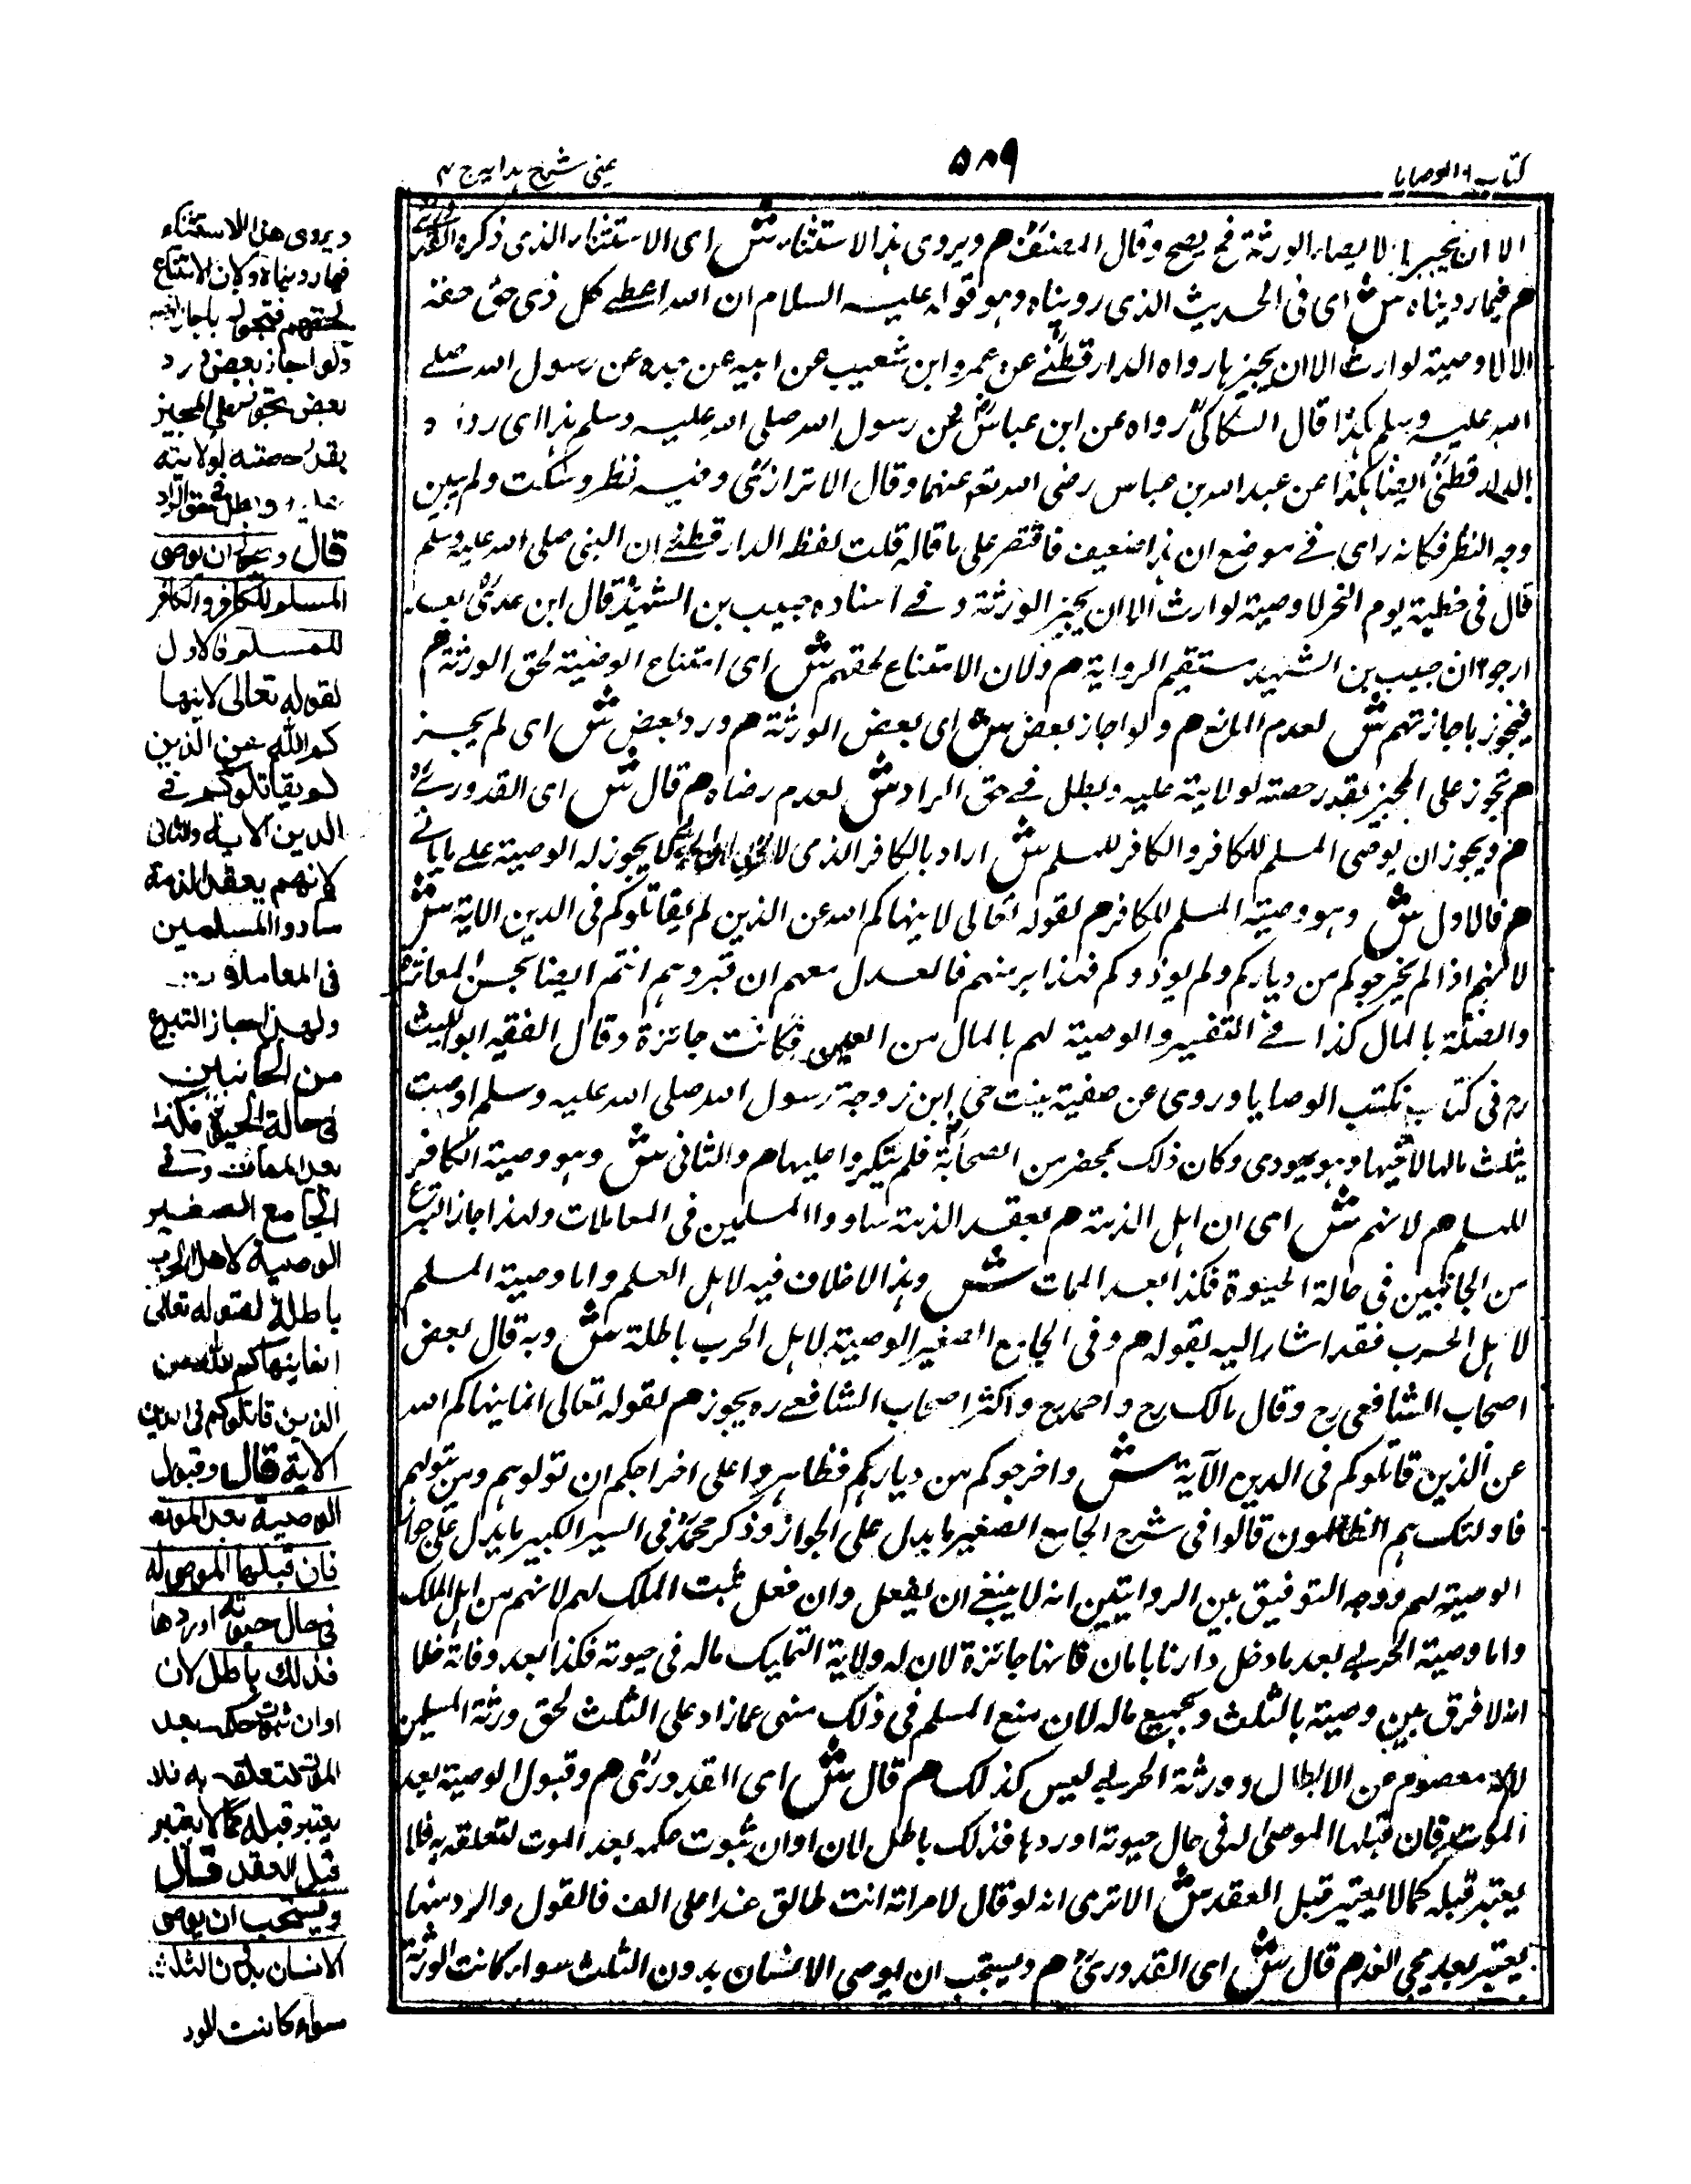 كتاب الوصايا
٥٨٩
عينى شرح هدايه ج ٤
الا ان يجيزها لا يصار الورثة فح يصح وقال المصنف م ويروى هذا الاستثناء ش اى الاستثناء الذى ذكره القدورى
م فيما رويناه ش اى فى الحديث الذى رويناه وهو قوله عليه السلام ان الله اعطى كل ذى حق حقه
الا لا وصية لوارث الا ان يجيزها رواه الدار قطنى عن عمرو ابن شعيب عن ابيه عن جده عن رسول الله صلى
الله عليه وسلم هكذا قال السكاكى رواه عن ابن عباس عن رسول الله صلى الله عليه وسلم هذا اى رواه
الدار قطنى ايضا هكذا عن عبد الله بن عباس رضى الله تعم عنهما وقال الاترازى وفيه نظر وسكت ولم يبين
وجه النظر فكانه راى فى موضع ان هذا ضعيف فاقتصر على ما قاله قلت لفظه الدار قطنى ان النبى صلى الله عليه وسلم
قال فى خطبة يوم النحر لا وصية لوارث الا ان يجيز الورثة وفى اسناده حبيب بن الشهيد قال ابن عدى بعده
ارجو ان حبيب بن الشهيد مستقيم الرواية م ولان الامتناع لحقهم ش اى امتناع الوصية لحق الورثة م
فيجوز باجازتهم ش لعدم المانع م ولو اجاز بعض ش اى بعض الورثة م ورد بعض ش اى لم يجز
م تجوز على المجيز بقدر حصته لولايته عليه وبطل فى حق الراد ش لعدم رضاه م قال ش اى القدورى
م ويجوز ان يوصى المسلم للكافر والكافر للمسلم ش اراد بالكافر الذمى لان الحربى لا يجوز له الوصية على ما ياتى
م فالاول ش وهو وصية المسلم للكافر م لقوله تعالى لا ينهاكم الله عن الذين لم يقاتلوكم فى الدين الاية ش
لانهم اذا لم يخرجوكم من دياركم ولم يوذوكم فهذا بر منهم فالعدل معهم ان تبروهم انتم ايضا بحسن المعاشرة
والصلة بالمال كذا فى التفسير والوصية لهم بالمال من العين فكانت جائزة وقال الفقيه ابو الليث
رح فى كتاب نكتب الوصايا وروى عن صفية بنت حى ابن زوجة رسول الله صلى الله عليه وسلم اوصت
بثلث مالها لاخيها وهو يهودى وكان ذلك بمحضر من الصحابة فلم ينكروا عليها م والثانى ش وهو وصية الكافر
للمسلم م لانهم ش اى ان اهل الذمة م بعقد الذمة ساووا المسلمين فى المعاملات ولهذا جاز التبرع
من الجانبين فى حالة الحيوة فكذا بعد الممات ش وهذا لا خلاف فيه لاهل العلم واما وصية المسلم
لاهل الحرب فقد اشار اليه بقوله م وفى الجامع الصغير الوصية لاهل الحرب باطلة ش وبه قال بعض
اصحاب الشافعى رح وقال مالك رح واحمد رح واكثر اصحاب الشافعى ره يجوز م لقوله تعالى انما ينهاكم الله
عن الذين قاتلوكم فى الدين الآية ش واخرجوكم من دياركم وظاهروا على اخراجكم ان تولوهم ومن يتولهم
فاولئك هم الظالمون قالوا فى شرح الجامع الصغير ما يدل على الجواز وذكر محمد فى السير الكبير ما يدل على جواز
الوصية لهم ووجه التوفيق بين الروايتين انه لا ينبغى ان يفعل وان فعل ثبت الملك لهم لانهم من اهل الملك
واما وصية الحربى بعد ما دخل دارنا بامان فانها جائزة لان له ولاية التمليك ماله فى حيوته فكذا بعد وفاته خلا
انه لا فرق بين وصية بالثلث وبجميع ماله لان منع المسلم فى ذلك منهى عما زاد على الثلث لحق ورثة المسلمين
لانه معصوم عن الابطال وورثة الحربى ليس كذلك م قال ش اى القدورى م وقبول الوصية بعد
الموت فان قبلها الموصى له فى حال حيوته اوردها فذلك باطل لان اوان ثبوت حكمه بعد الموت لتعلقه به فلا
يعتبر قبله كما لا يعتبر قبل العقد ش الا ترى انه لو قال لامراته انت طالق غدا على الف فالقول والرد منها
يعتبر بعد مجى الغد م قال ش اى القدورى م ويستحب ان يوصى الانسان بدون الثلث سواء كانت الورثة
ويروى هذا الاستثناء
فيما رويناه ولان الامتناع
لحقهم فتجوز باجازتهم
ولو اجاز بعض ورد
بعض تجوز على المجيز
بقدر حصته لولايته
عليه وبطل فى حق الراد
قال ويجوز ان يوصى
المسلم للكافر والكافر
للمسلم فالاول
لقوله تعالى لا ينها
كم الله عن الذين
لم يقاتلوكم فى
الدين الاية والثانى
لانهم بعقد الذمة
ساووا المسلمين
فى المعاملات
ولهذا جاز التبرع
من الجانبين
فى حالة الحيوة فكذا
بعد الممات وفى
الجامع الصغير
الوصية لاهل الحرب
باطلة لقوله تعالى
انما ينهاكم الله عن
الذين قاتلوكم فى الدين
الاية قال وقبول
الوصية بعد الموت
فان قبلها الموصى له
فى حال حيوته اوردها
فذلك باطل لان
اوان ثبوت حكمه بعد
الموت لتعلقه به فلا
يعتبر قبله كما لا يعتبر
قبل العقد قال
ويستحب ان يوصى
الانسان بدون الثلث
سواء كانت الور